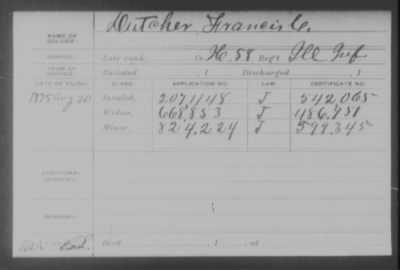 NAME OF SOLDIER: Dutcher Francis C.
SERVICE: Late rank, Co. H. 58 Reg't Ill Inf
TERM OF SERVICE: Enlisted , 1 Discharged , 1
DATE OF FILING. CLASS. APPLICATION NO. LAW. CERTIFICATE NO.
1875 Aug 20 Invalid, 207148 J 542.065
Widow, 668.853 J 486.451
Minor, 824.224 J 599.345
ADDITIONAL SERVICES:
REMARKS:
Died , 1 , at